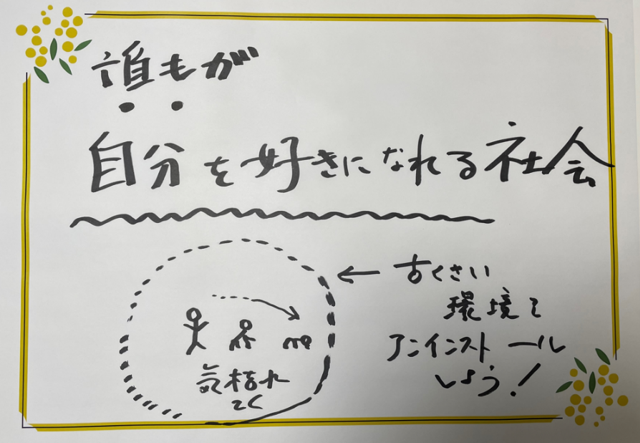 誰もが
自分を好きになれる社会
古くさい
環境を
アンインストール
しよう！
気枯れ
てく